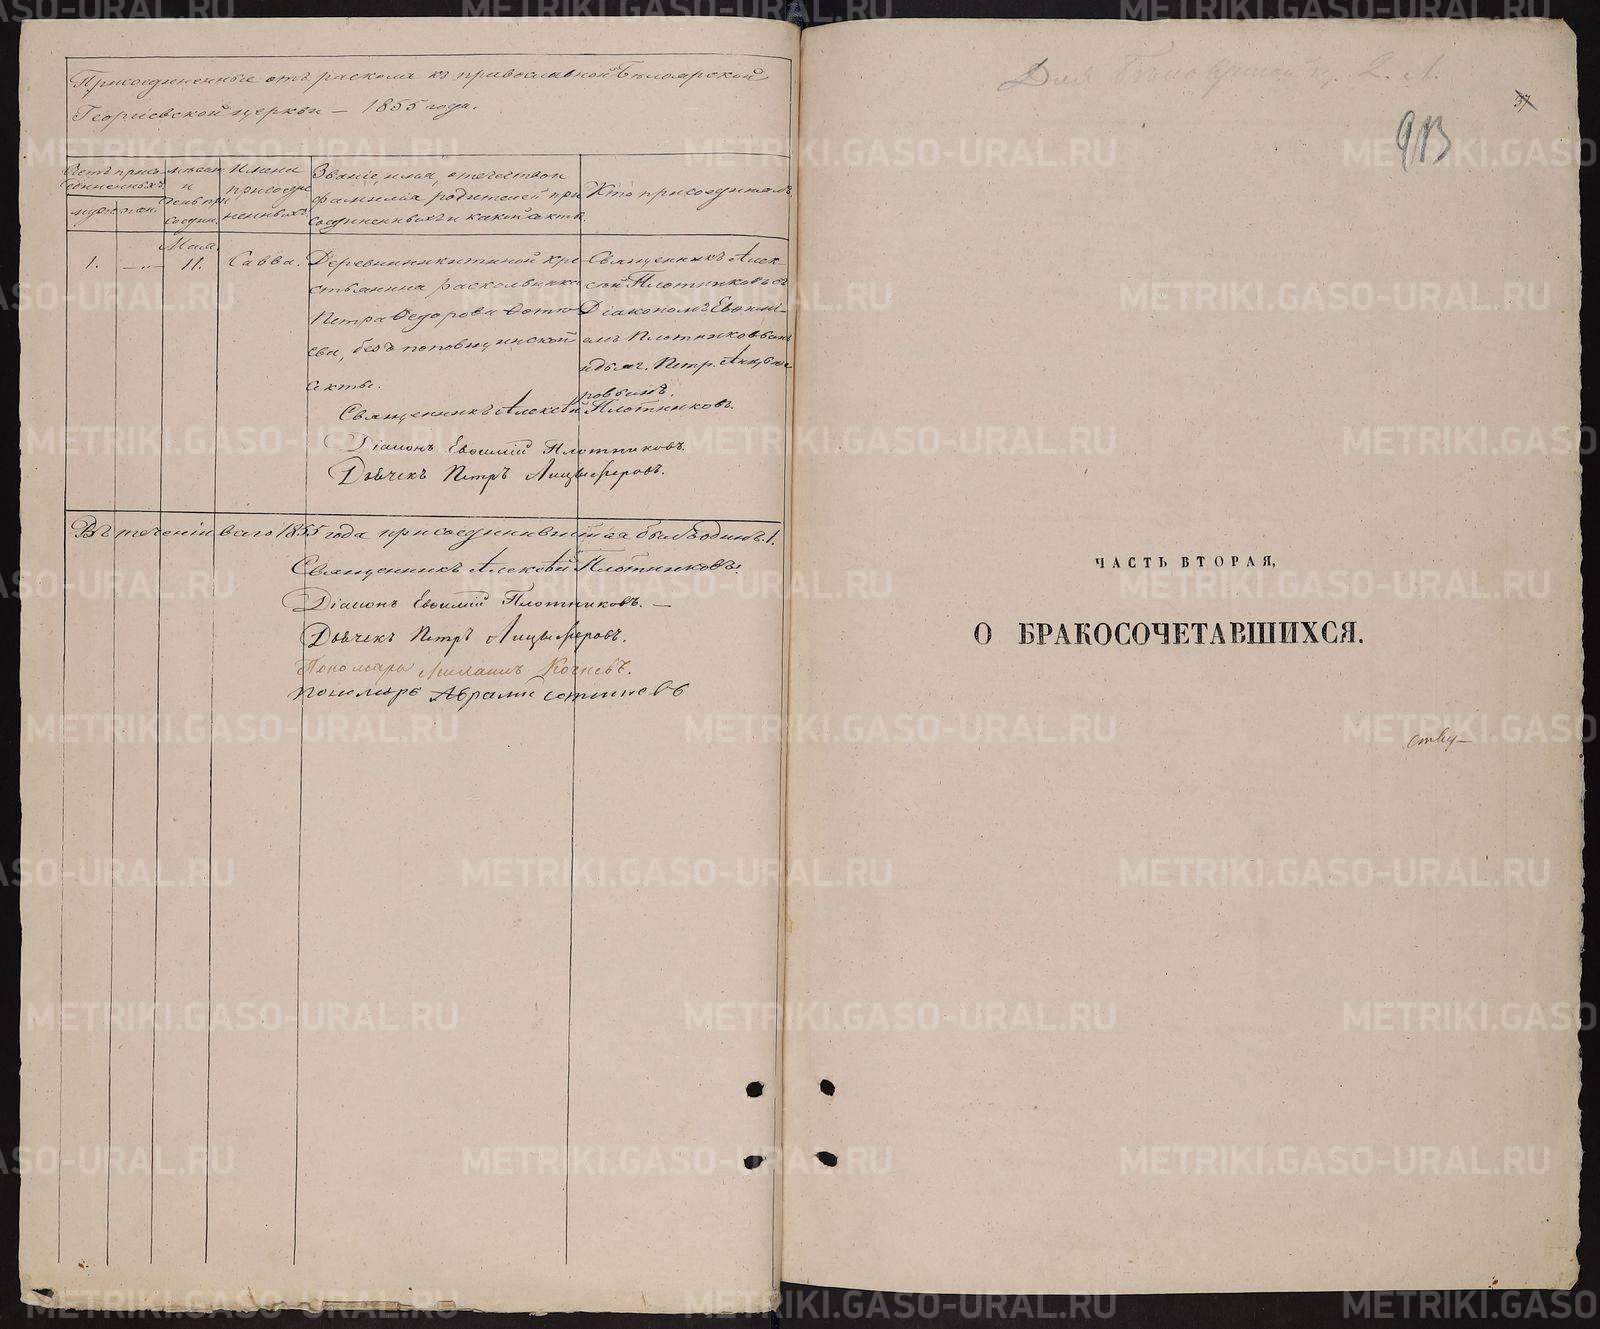 Присоединенные отъ раскола къ православной Бѣлоярской
Георгіевской церкви – 1855 года.
Счетъ присо-
единенныхъ
муж. жен.
мѣсяц
и
день при
соедин.
Имена
присоеди
ненныхъ.
Званіе, имя, отечество и
фамилія родителей при
соединенныхъ и какой секты.
Кто присоединялъ
1.
Мая.
11.
Савва.
Деревни Никитиной кре-
стьянина раскольника
Петра Ѳедорова Сотни
ева, безъ поповщинской
секты.
Священникъ Алек-
сѣй Плотниковъ съ
Діакономъ Евѳимі-
емъ Плотниковымъ
и дьяч. Петр. Анцыфе
ровымъ.
Священникъ Алексѣй Плотниковъ.
Діаконъ Евѳимій Плотниковъ.
Дьячекъ Петръ Анцыферовъ.
Въ теченіи всего 1855 года присоединившійся былъ одинъ. 1.
Священникъ Алексѣй Плотниковъ.
Діаконъ Евѳимій Плотниковъ. –
Дьячекъ Петръ Анцыферовъ.
Пономарь Михаилъ Кочневъ.
пономарь Аврамій
Для Бѣлоярской ц. 2. Л.
37
913
ЧАСТЬ ВТОРАЯ,
О БРАКОСОЧЕТАВШИХСЯ.
METRIKI.GASO-URAL.RU